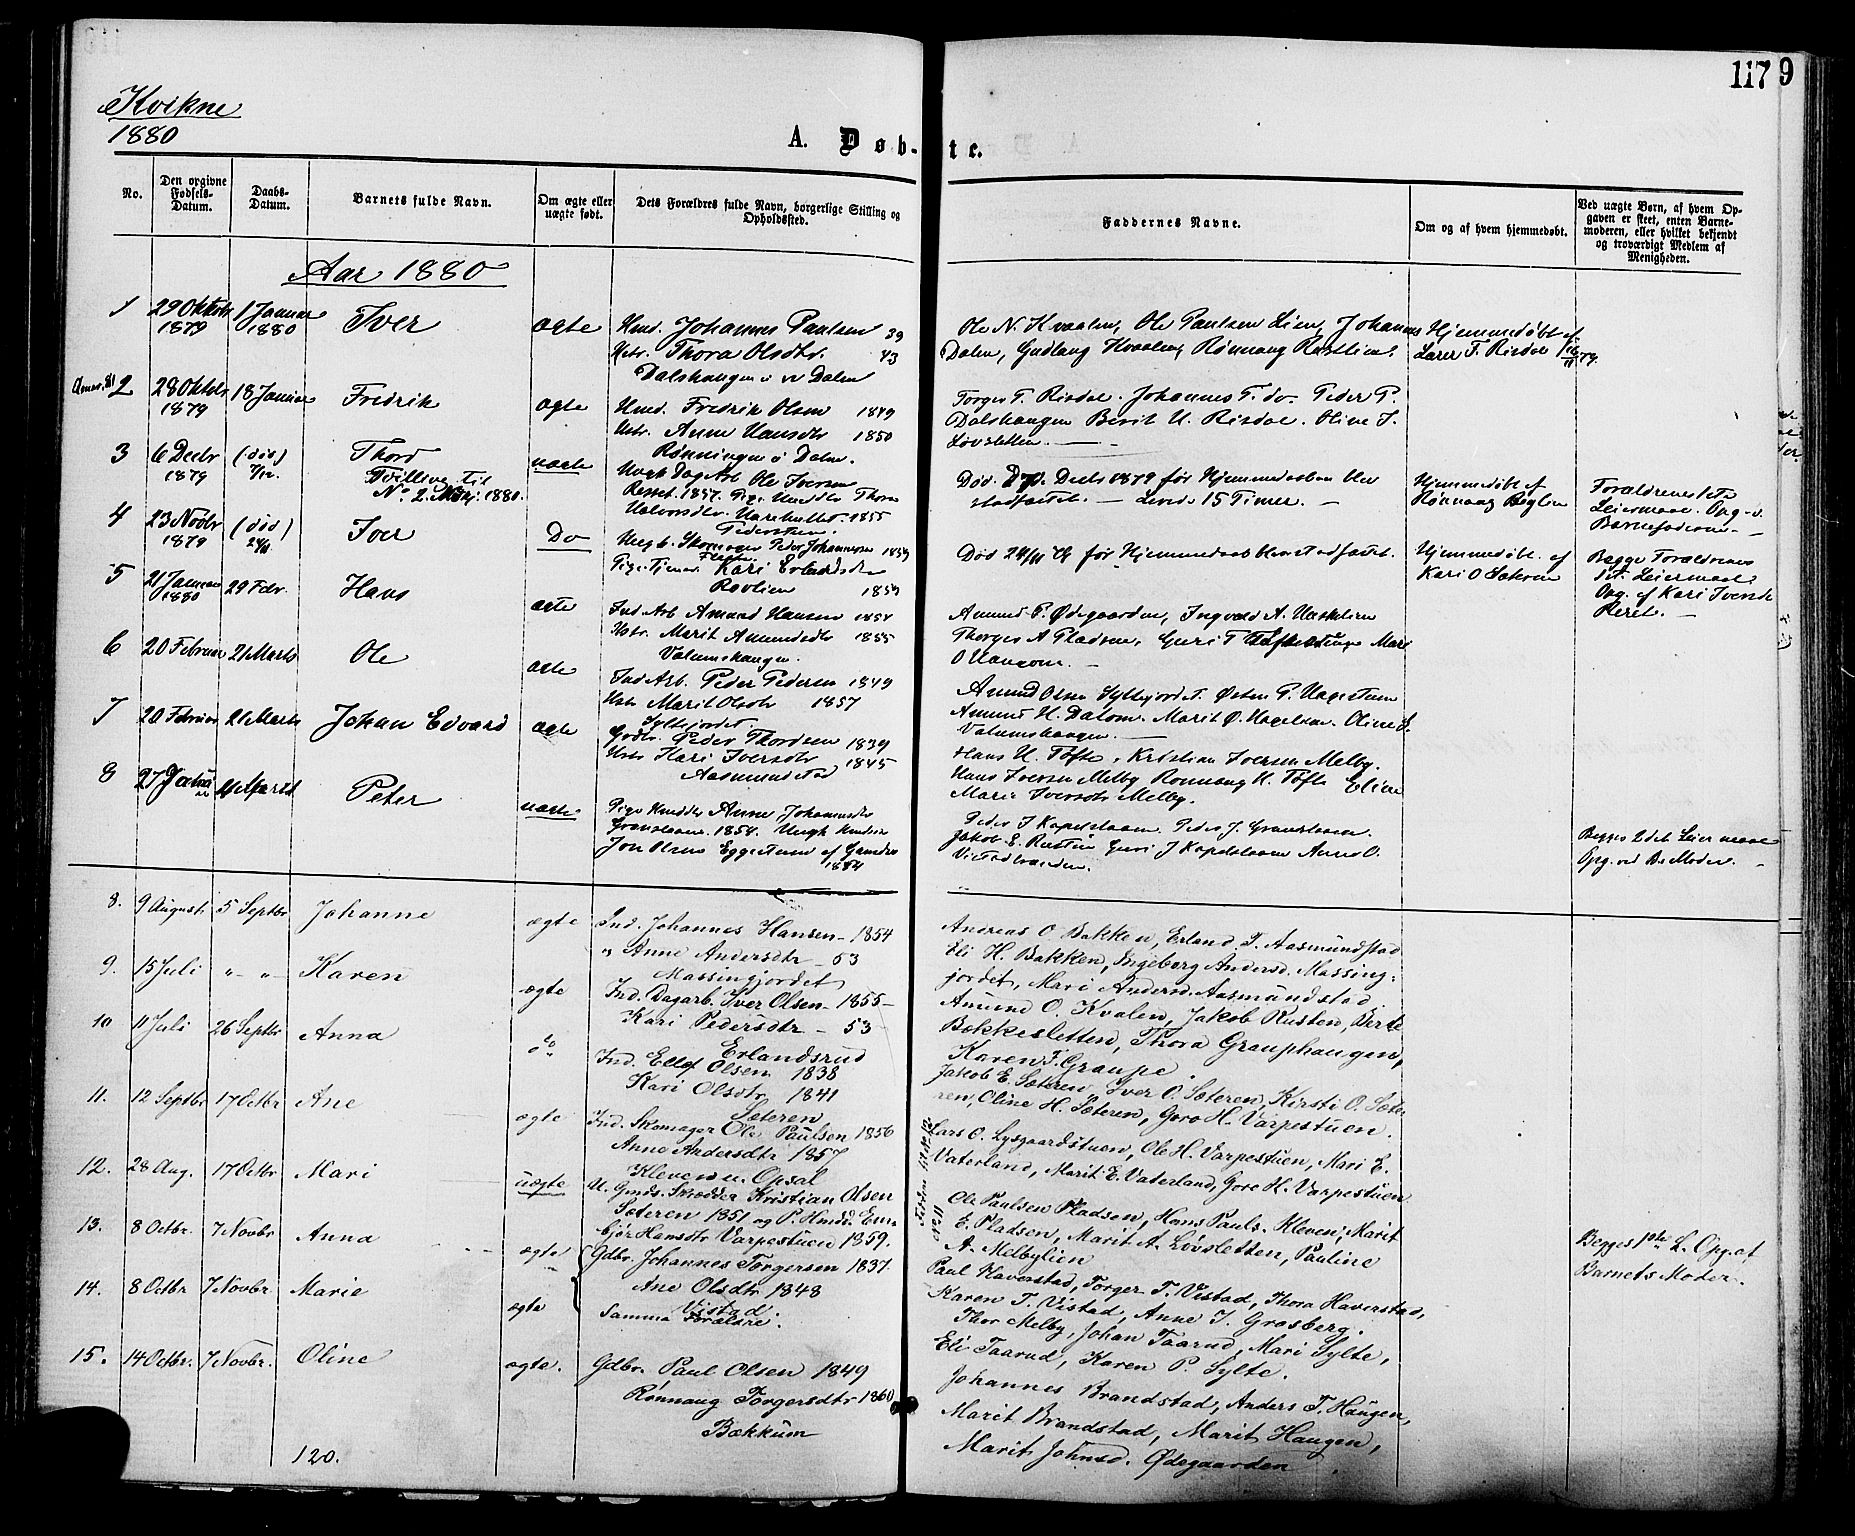 117 9
Kvikne
1880
A. Døb-te.
No.
Den opgivne Fødsels-Datum.
Daabs-Datum.
Barnets fulde Navn.
Om ægte eller uægte født.
Dets Forældres fulde Navn, borgerlige Stilling og Opholdssted.
Faddernes Navne.
Om og af hvem hjemmedøbt.
Ved uægte Børn, af hvem Opgaven er skeet, enten Barnemoderen, eller hvilket bekjendt og troværdigt Medlem af Menigheden.
Aar 1880
1 29 Oktobr 1879 1 Januar 1880 Iver ægte
Johannes Paulsen 39
Thora Olsdtr. 43
Dalshaugen i Dalen
Ole N. Kvaalen, Ole Paulsen Lien, Johannes
Dalen, Gudlaug Kvaalen, Rønnaug
Hjemmedøbt af
Lærer T. Risdal
2 28 Oktobr 1879 18 Januar Fredrik ægte
Fredrik Olsen 1849
Hstr. Anne Hansdtr 1850
Rønningen i Dalen.
Torger T. Risdal. Johannes T. do. Peder P.
Dalshaugen Berit H. Risdal. Oline I.
Løvsletten.
3 6 Decbr 1879 (død) 7/12 Thord uægte
Tvilling til
No 2 1880.
Ungk Dag Arb Ole Iversen
1857. Pige Thora
Halvorsdtr. 1855
Død D. 7de Decbr 1879 før Hjemmedaaben blev
stadfæstet. — Levede 15 Timer. —
Hjemmedøbt af
Rønnaug
Forældrenes 1ste
Leiermaal. Opg. v.
Barnefaderen
4 23 Novbr 1879 (død) 24/11 Iver Do
Ungk. Skomager Peder Johannesen 1859
Pige Tjener Kari Erlandsdtr
1859
Død 24/11 79 før Hjemmedaab blev stadfæstet.
Hjemmedøbt af
Kari O Sæteren
Begge Forældrenes
1st. Leiermaal
Opg. af Kari Iversdtr
5 21 Januar 1880 29 Febr. Hans ægte
Ind Arb Amund Hansen 1854
Hstr. Marit Amundsdtr 1855
Valumshaugen.
Amund P. Ødegaarden, Ingvald A.
Thorger A Pladsen, Guri T Mari
O Haugom. —
6 20 Februar 21 Marts Ole ægte
Ind Arb. Peder Pedersen 1849
Hstr Marit Olsdtr 1857
Syltejordet.
Amund Olsen Syltejordet. Østen P.
Amund H. Dalom. Marit Ø. Oline
Valumshaugen
7 20 Februar 21 Marts Johan Edvard ægte
Gdbr. Peder Thordsen 1839
Hstr Kari Iversdtr 1845
Aasmundstad
Hans H. Tofte, Kristian Iversen Melby.
Hans Iversen Melby Rønnaug K. Tofte Eline
Marie Iversdtr Melby.
8 27 Peter uægte
Pige Anne Johannesdtr
1854. Ungk
Jon Olsen Eggestuen
Peder J Kapelslaaen. Peder J.
Jakob E. Rusten Guri J Kapelslaaen Anne O.
Begges 2det Leiermaal
Opg. ved B. Moder. —
8. 9 August 5 Septbr Johanne ægte
Ind. Johannes Hansen — 1854
" Anne Andersdtr — 53
Massingjordet
Andreas O Bakken, Erland T. Aasmundstad
Eli H. Bakken, Ingeborg Andersd. Massing:
jordet, Mari Andersd. Aasmundstad
9. 15 Juli " — " Karen ægte
Ind. Dagarb. Iver Olsen — 1855 —
Kari Pedersdtr — 53
Erlandsrud
Amund O. Kvalen, Jakob Rusten, Berte
Bakkesletten, Thora Grauphaugen,
Karen J. Graupe.
10 11 Juli 26 Septbr Anna do
Ind. Ellef Olsen 1838
Kari Olsdtr 1841
Sæteren
Jakob E. Sæteren, Iver O. Sæteren, Kirsti O. Sæte-
ren, Oline H. Sæteren, Goro H. Varpestuen.
11. 12 Septbr 17 Octbr Ane ægte
Ind. Skomager Ole Paulsen 1856
Anne Andersdtr 1857
Kleven u. Opsal
Lars O. Lysgaardstuen, Ole H. Varpestuen, Mari E.
Vaterland, Marit E. Vaterland, Goro H. Varpestuen
12. 28 Aug. 17 Octbr Mari uægte
U. Gmds. Skrædder Kristian Olsen
Sæteren 1851 og P. Hmds. Em-
bjør Hansdtr Varpestuen 1859.
Ole Paulsen Pladsen, Hans Pauls. Kleven, Marit
E. Pladsen, Marit A. Løvsletten, Pauline
A. Melbylien
Begges 1ste L. Opg. af
Barnets Moder.
13. 8 Octbr. 7 Novbr Anna ægte
Gdbr. Johannes Torgersen 1837.
Ane Olsdtr 1848
Vistad.
Paul Haverstad, Torger T. Vistad, Thora Haverstad,
Karen T. Vistad, Anne J. Grosberg.
14. 8 Octbr 7 Novbr Marie ægte
Samme Forældre.
Thor Melby, Johan Taarud, Mari Sylte,
Eli Taarud, Karen P. Sylte.
15. 14 Octbr. 7 Novbr. Oline ægte.
Gdbr. Paul Olsen 1849
Rønnaug Torgersdtr 1860
Bækkum
Johannes Brandstad, Anders T. Haugen,
Marit Brandstad, Marit Haugen,
Marit Johnsd. Ødegaarden
120.